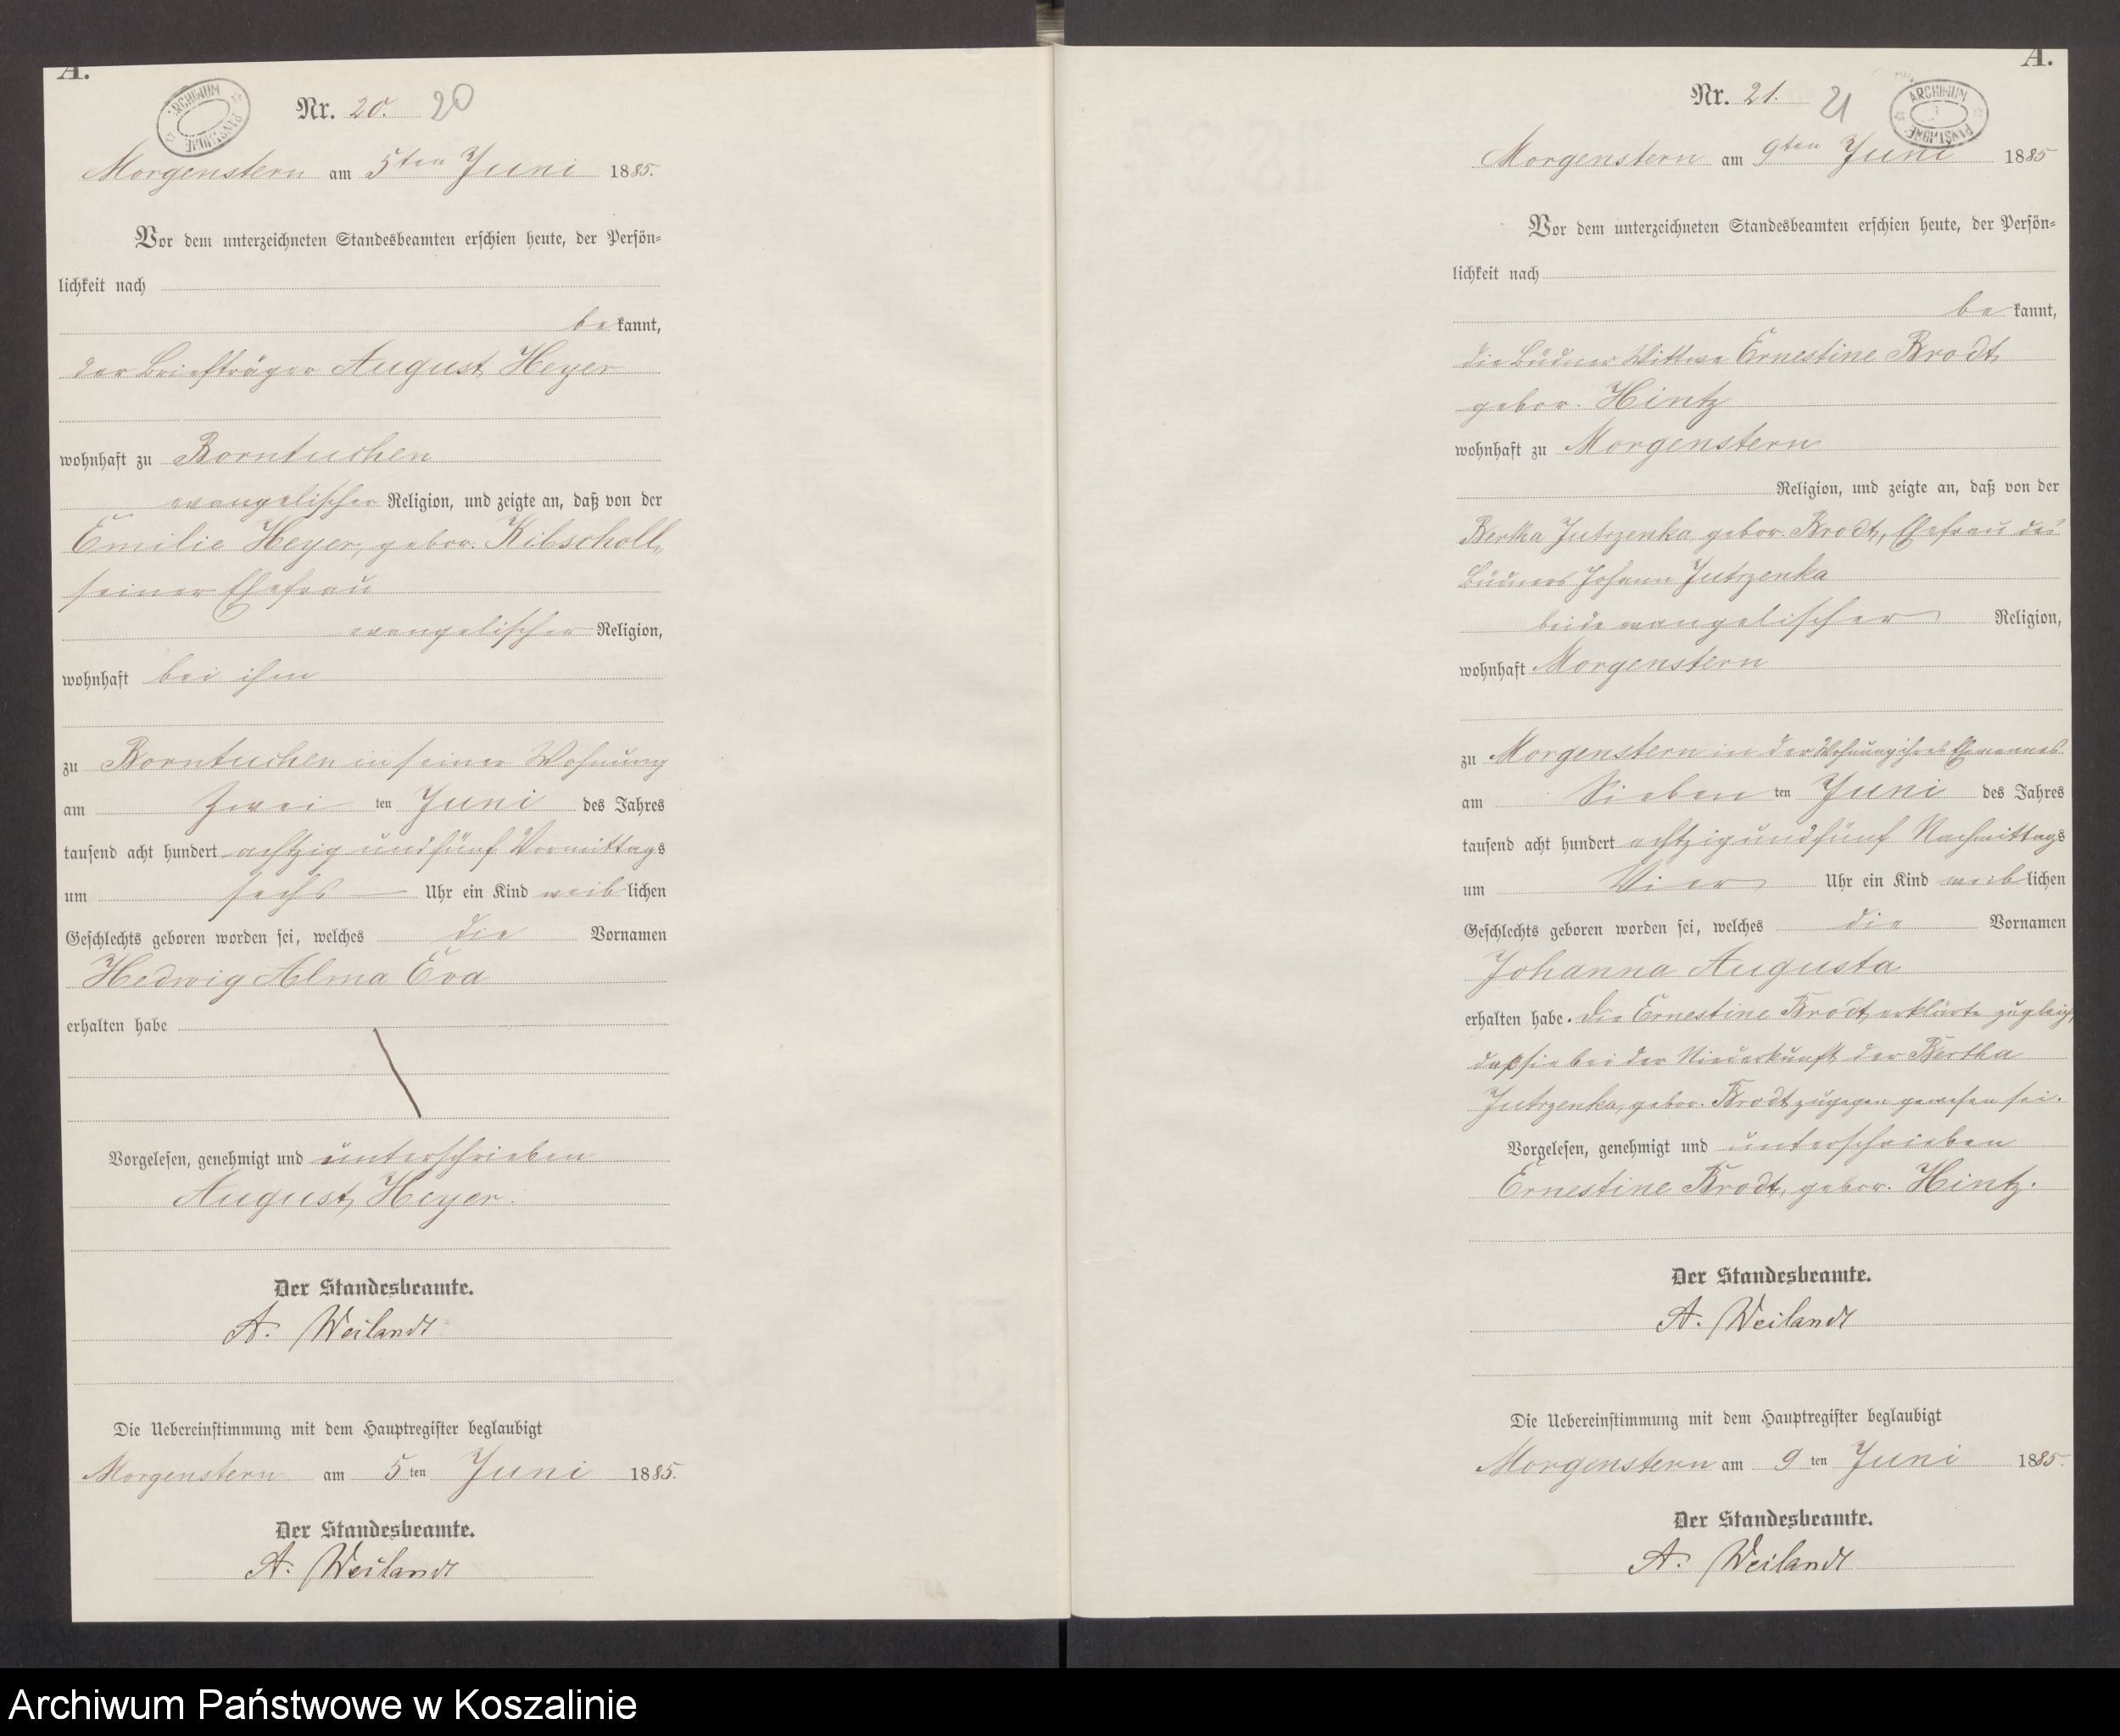 A.
ARCHIWUM PAŃSTWOWE
Nr. 20. 20
Morgenstern am 5ten Juni 1885.
Vor dem unterzeichneten Standesbeamten erschien heute, der Persön=
lichkeit nach
bekannt,
der Briefträger August Heyer
wohnhaft zu Borntuchen
evangelischer Religion, und zeigte an, daß von der
Emilie Heyer, gebor. Kibscholl,
seiner Ehefrau
evangelischer Religion,
wohnhaft bei ihm
zu Borntuchen in seiner Wohnung
am Zwei ten Juni des Jahres
tausend acht hundert achtzig und fünf Vormittags
um sechs Uhr ein Kind weiblichen
Geschlechts geboren worden sei, welches die Vornamen
Hedwig Alma Eva
erhalten habe
Vorgelesen, genehmigt und unterschrieben
August Heyer.
Der Standesbeamte.
A. Weilandt
Die Uebereinstimmung mit dem Hauptregister beglaubigt
Morgenstern am 5ten Juni 1885.
Der Standesbeamte.
A. Weilandt
A.
Nr. 21. 21
ARCHIWUM PAŃSTWOWE
Morgenstern am 9ten Juni 1885
Vor dem unterzeichneten Standesbeamten erschien heute, der Persön=
lichkeit nach
bekannt,
die Büdner Wittwe Ernestine Brodt
gebor. Hintz
wohnhaft zu Morgenstern
Religion, und zeigte an, daß von der
Bertha Jutrzenka gebor. Brodt, Ehefrau des
Büdners Johann Jutrzenka
beide evangelischer Religion,
wohnhaft Morgenstern
zu Morgenstern in der Wohnung ihres Ehemannes
am Sieben ten Juni des Jahres
tausend acht hundert achtzig und fünf Nachmittags
um Vier Uhr ein Kind weiblichen
Geschlechts geboren worden sei, welches die Vornamen
Johanna Augusta
erhalten habe. Die Ernestine Brodt erklärte zugleich,
daß sie bei der Niederkunft der Bertha
Jutrzenka, gebor. Brodt zugegen gewesen sei.
Vorgelesen, genehmigt und unterschrieben
Ernestine Brodt, gebor. Hintz.
Der Standesbeamte.
A. Weilandt
Die Uebereinstimmung mit dem Hauptregister beglaubigt
Morgenstern am 9ten Juni 1885.
Der Standesbeamte.
A. Weilandt
Archiwum Państwowe w Koszalinie